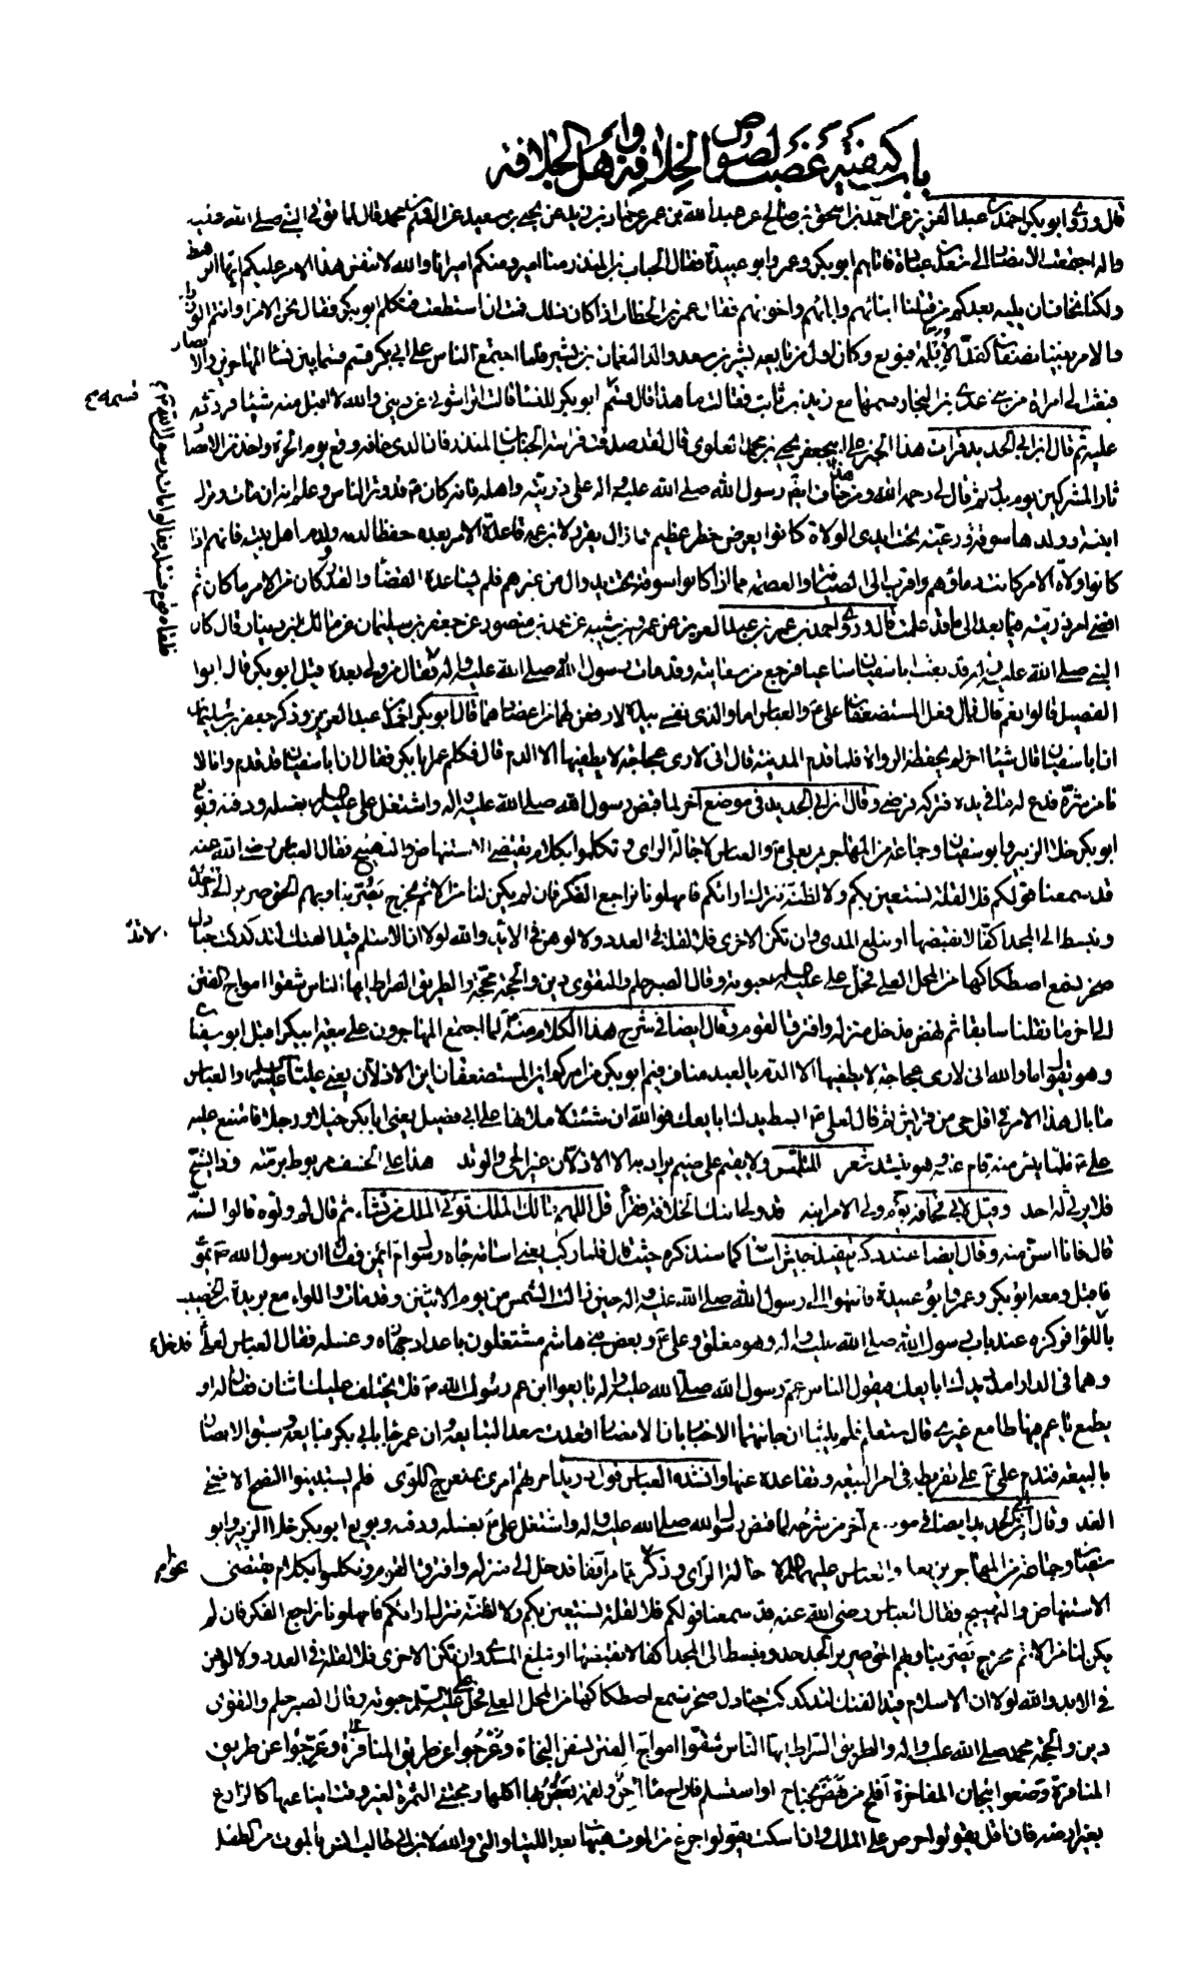 باب كيفية غصب لصوص الخلافة واهل الجلافة
قال وروى ابو بكر احمد بن عبد العزيز عن احمد بن اسحق بن صالح عن عبد الله بن عمر عن حماد بن زيد عن يحيى بن سعيد عن القاسم بن محمد قال لما توفى النبي صلى الله عليه
واله اجتمعت الانصار الى سعد بن عبادة فاتاهم ابو بكر وعمر وابو عبيدة فقال الحباب بن المنذر منا امير ومنكم امير انا والله لا ننفس هذا الامر عليكم ايها الرهط
ولكنا نخاف ان يليه بعدكم من قتلنا ابنائهم وابائهم واخوانهم فقال عمر بن الخطاب اذا كان ذلك فمت ان استطعت فتكلم ابو بكر فقال نحن الامراء وانتم الوزراء
والامر بيننا نصفان كقد الابلمة فبويع وكان اول من بايعه بشير بن سعد والد النعمان بن بشير فلما اجتمع الناس على ابي بكر قسم قسما بين نساء المهاجرين والانصار
فبعث الى امراة من بني عدي بن النجار قسمها مع زيد بن ثابت فقالت ما هذا قال قسم قسمه ابو بكر للنساء قالت اتراشوني عن ديني والله لا اقبل منه شيئا فردته
عليه ثم قال ابن ابي الحديد قرات هذا الخبر على ابي جعفر يحيى بن محمد العلوي قال لقد صدقت فراسة الحباب بن المنذر فان الذي خافه وقع يوم الحرة واخذ من الانصار
ثار المشركين يوم بدر ثم قال لي رحمه الله ومن هذا خاف ايضا رسول الله صلى الله عليه واله على ذريته واهله فانه كان ع قد وتر الناس وعلم انه ان مات وترك
ابنته وولدها سوقة ورعية تحت ايدي الولاة كانوا بعرض خطر عظيم فما زال يقرر لابن عمه قاعدة الامر بعده حفظا لدمه ودماء اهل بيته فانهم اذا
كانوا ولاة الامر كانت دماؤهم اقرب الى الصيانة والعصمة مما اذا كانوا سوقة تحت يد وال من غيرهم فلم يساعده القضاء والقدر وكان من الامر ما كان ثم
افضى امر ذريته فيما بعد الى ما قد علمت قال وروى احمد بن عبد العزيز عن عمر بن شبه عن محمد بن منصور عن جعفر بن سليمان عن مالك بن دينار قال كان
النبي صلى الله عليه واله قد بعث ابا سفيان ساعيا فرجع من سعايته وقد مات رسول الله صلى الله عليه واله فقال من ولي بعده قيل ابو بكر قال ابو
الفصيل قالوا نعم قال فما فعل المستضعفان علي ع والعباس اما والذي نفسي بيده لارفعن لهما من اعضادهما قال ابو بكر احمد بن عبد العزيز وذكر جعفر بن سليمان
ان ابا سفيان قال شيئا اخر لم يحفظه الرواة فلما قدم المدينة قال اني لارى عجاجة لا يطفيها الا الدم قال فكلم عمر ابا بكر فقال ان ابا سفيان قد قدم وانا لا
نامن شره فدع له ما في يده فتركه فرضي وقال ابن ابي الحديد في موضع اخر لما قبض رسول الله صلى الله عليه واله واشتغل علي عليه السلم بغسله ودفنه وبويع
ابو بكر خلا الزبير وابو سفيان وجماعة من المهاجرين بعلي ع والعباس لاجالة الراي وتكلموا بكلام يقتضى الاستنهاض والتهييج فقال العباس رضي الله عنه
قد سمعنا قولكم فلا لقلة نستعين بكم ولا لظنة نترك اراءكم فامهلونا نراجع الفكر فان لم يكن لنا من الاثم مخرج يصر بنا وبهم الحق صرير الجدجد
ونبسط الى المجد اكفا لا نقبضها او نبلغ المدى وان تكن الاخرى فلا لقلة في العدد ولا لوهن في الايد والله لولا ان الاسلام قيد الفتك لتدكدكت جنادل
صخر يسمع اصطكاكها من المحل العلي فحل علي عليه السلم حبوته وقال الصبر حلم والتقوى دين والحجة محمد والطريق الصراط ايها الناس شقوا امواج الفتن
الى اخر ما نقلنا سابقا ثم نهض فدخل منزله وافترق القوم وقال ايضا في شرح هذا الكلام منه ع لما اجتمع المهاجرون على بيعة ابي بكر اقبل ابو سفيان
وهو يقول اما والله اني لارى عجاجة لا يطفيها الا الدم يا لعبد مناف فيم ابو بكر من امركم اين المستضعفان اين الاذلان يعني عليا عليه السلم والعباس
ما بال هذا الامر في اقل حي من قريش ثم قال لعلي ع ابسط يدك ابايعك فوالله ان شئت لاملانها على ابي فصيل يعني ابا بكر خيلا ورجلا فامتنع عليه
علي ع فلما يئس منه قام عنه وهو ينشد شعر المتلمس ولا يقيم على ضيم يراد به الا الاذلان عير الحي والوتد هذا على الخسف مربوط برمته وذا يشج
فلا يرثي له احد وقيل لابي قحافة يوم ولي الامر ابنه قد ولي ابنك الخلافة فقرأ قل اللهم مالك الملك تؤتي الملك من تشاء ثم قال لم ولوه قالوا لسنه
قال فانا اسن منه وقال ايضا عند ذكر تنفيذ جيش اسامة كما سنذكره حيث قال فلما ركب يعني اسامة جاءه رسول ام ايمن فقال ان رسول الله ص يموت
فاقبل ومعه ابو بكر وعمر وابو عبيدة فانتهوا الى رسول الله صلى الله عليه واله حين زالت الشمس من يوم الاثنين وقد مات واللواء مع بريدة بن الخصيب
فدخل باللواء فركزه عند باب رسول الله صلى الله عليه واله وهو مغلق وعلي ع وبعض بني هاشم مشتغلون باعداد جهازه وغسله فقال العباس لعلي
وهما في الدار امدد يدك ابايعك فيقول الناس عم رسول الله صلى الله عليه واله بايع ابن عم رسول الله ص فلا يختلف عليك اثنان فقال له او
يطمع يا عم فيها طامع غيري قال ستعلم فلم يلبثا ان جاءتهما الاخبار بان الانصار اقعدت سعدا لتبايعه وان عمر جاء بابي بكر فبايعه وسبق الانصار
بالبيعة فندم علي ع على تفريطه في امر البيعة وتقاعده عنها وانشده العباس قول دريد امرتهم امري بمنعرج اللوى فلم يستبينوا النصح الا ضحى
الغد وقال ابن ابي الحديد ايضا في موضع آخر من شرحه لما قبض رسول الله صلى الله عليه واله واشتغل علي ع بغسله ودفنه وبويع ابو بكر خلا الزبير وابو
سفيان وجماعة من المهاجرين بعلي والعباس عليهما السلم لاجالة الراي وذكر تمام ما مر آنفا فدخل الى منزله وافترق القوم وتكلموا بكلام يقتضى
الاستنهاض والتهييج فقال العباس رضي الله عنه قد سمعنا قولكم فلا لقلة نستعين بكم ولا لظنة نترك اراءكم فامهلونا نراجع الفكر فان لم
يكن لنا من الاثم مخرج يصر بنا وبهم الحق صرير الجدجد ونبسط الى المجد اكفا لا نقبضها او نبلغ المدى وان تكن الاخرى فلا لقلة في العدد ولا لوهن
في الايد والله لولا ان الاسلام قيد الفتك لتدكدكت جنادل صخر يسمع اصطكاكها من المحل العلي فحل علي عليه السلم حبوته وقال الصبر حلم والتقوى
دين والحجة محمد صلى الله عليه واله والطريق الصراط ايها الناس شقوا امواج الفتن بسفن النجاة وعرجوا عن طريق المنافرة وعرجوا عن طريق
المنافرة وضعوا تيجان المفاخرة افلح من نهض بجناح او استسلم فاراح ماء آجن ولقمة يغص بها اكلها ومجتنى الثمرة لغير وقت ايناعها كالزارع
بغير ارضه فان اقل يقولوا حرص على الملك وان اسكت يقولوا جزع من الموت هيهات بعد اللتيا والتي والله لابن ابي طالب انس بالموت من الطفل